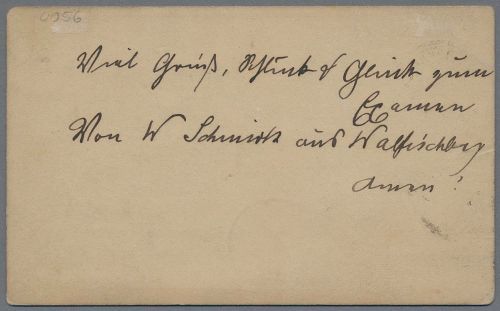 0056
Viel Grüß, Schluck & Glück zum
Examen
Von W Schmidt aus Walfischbay
Amen!